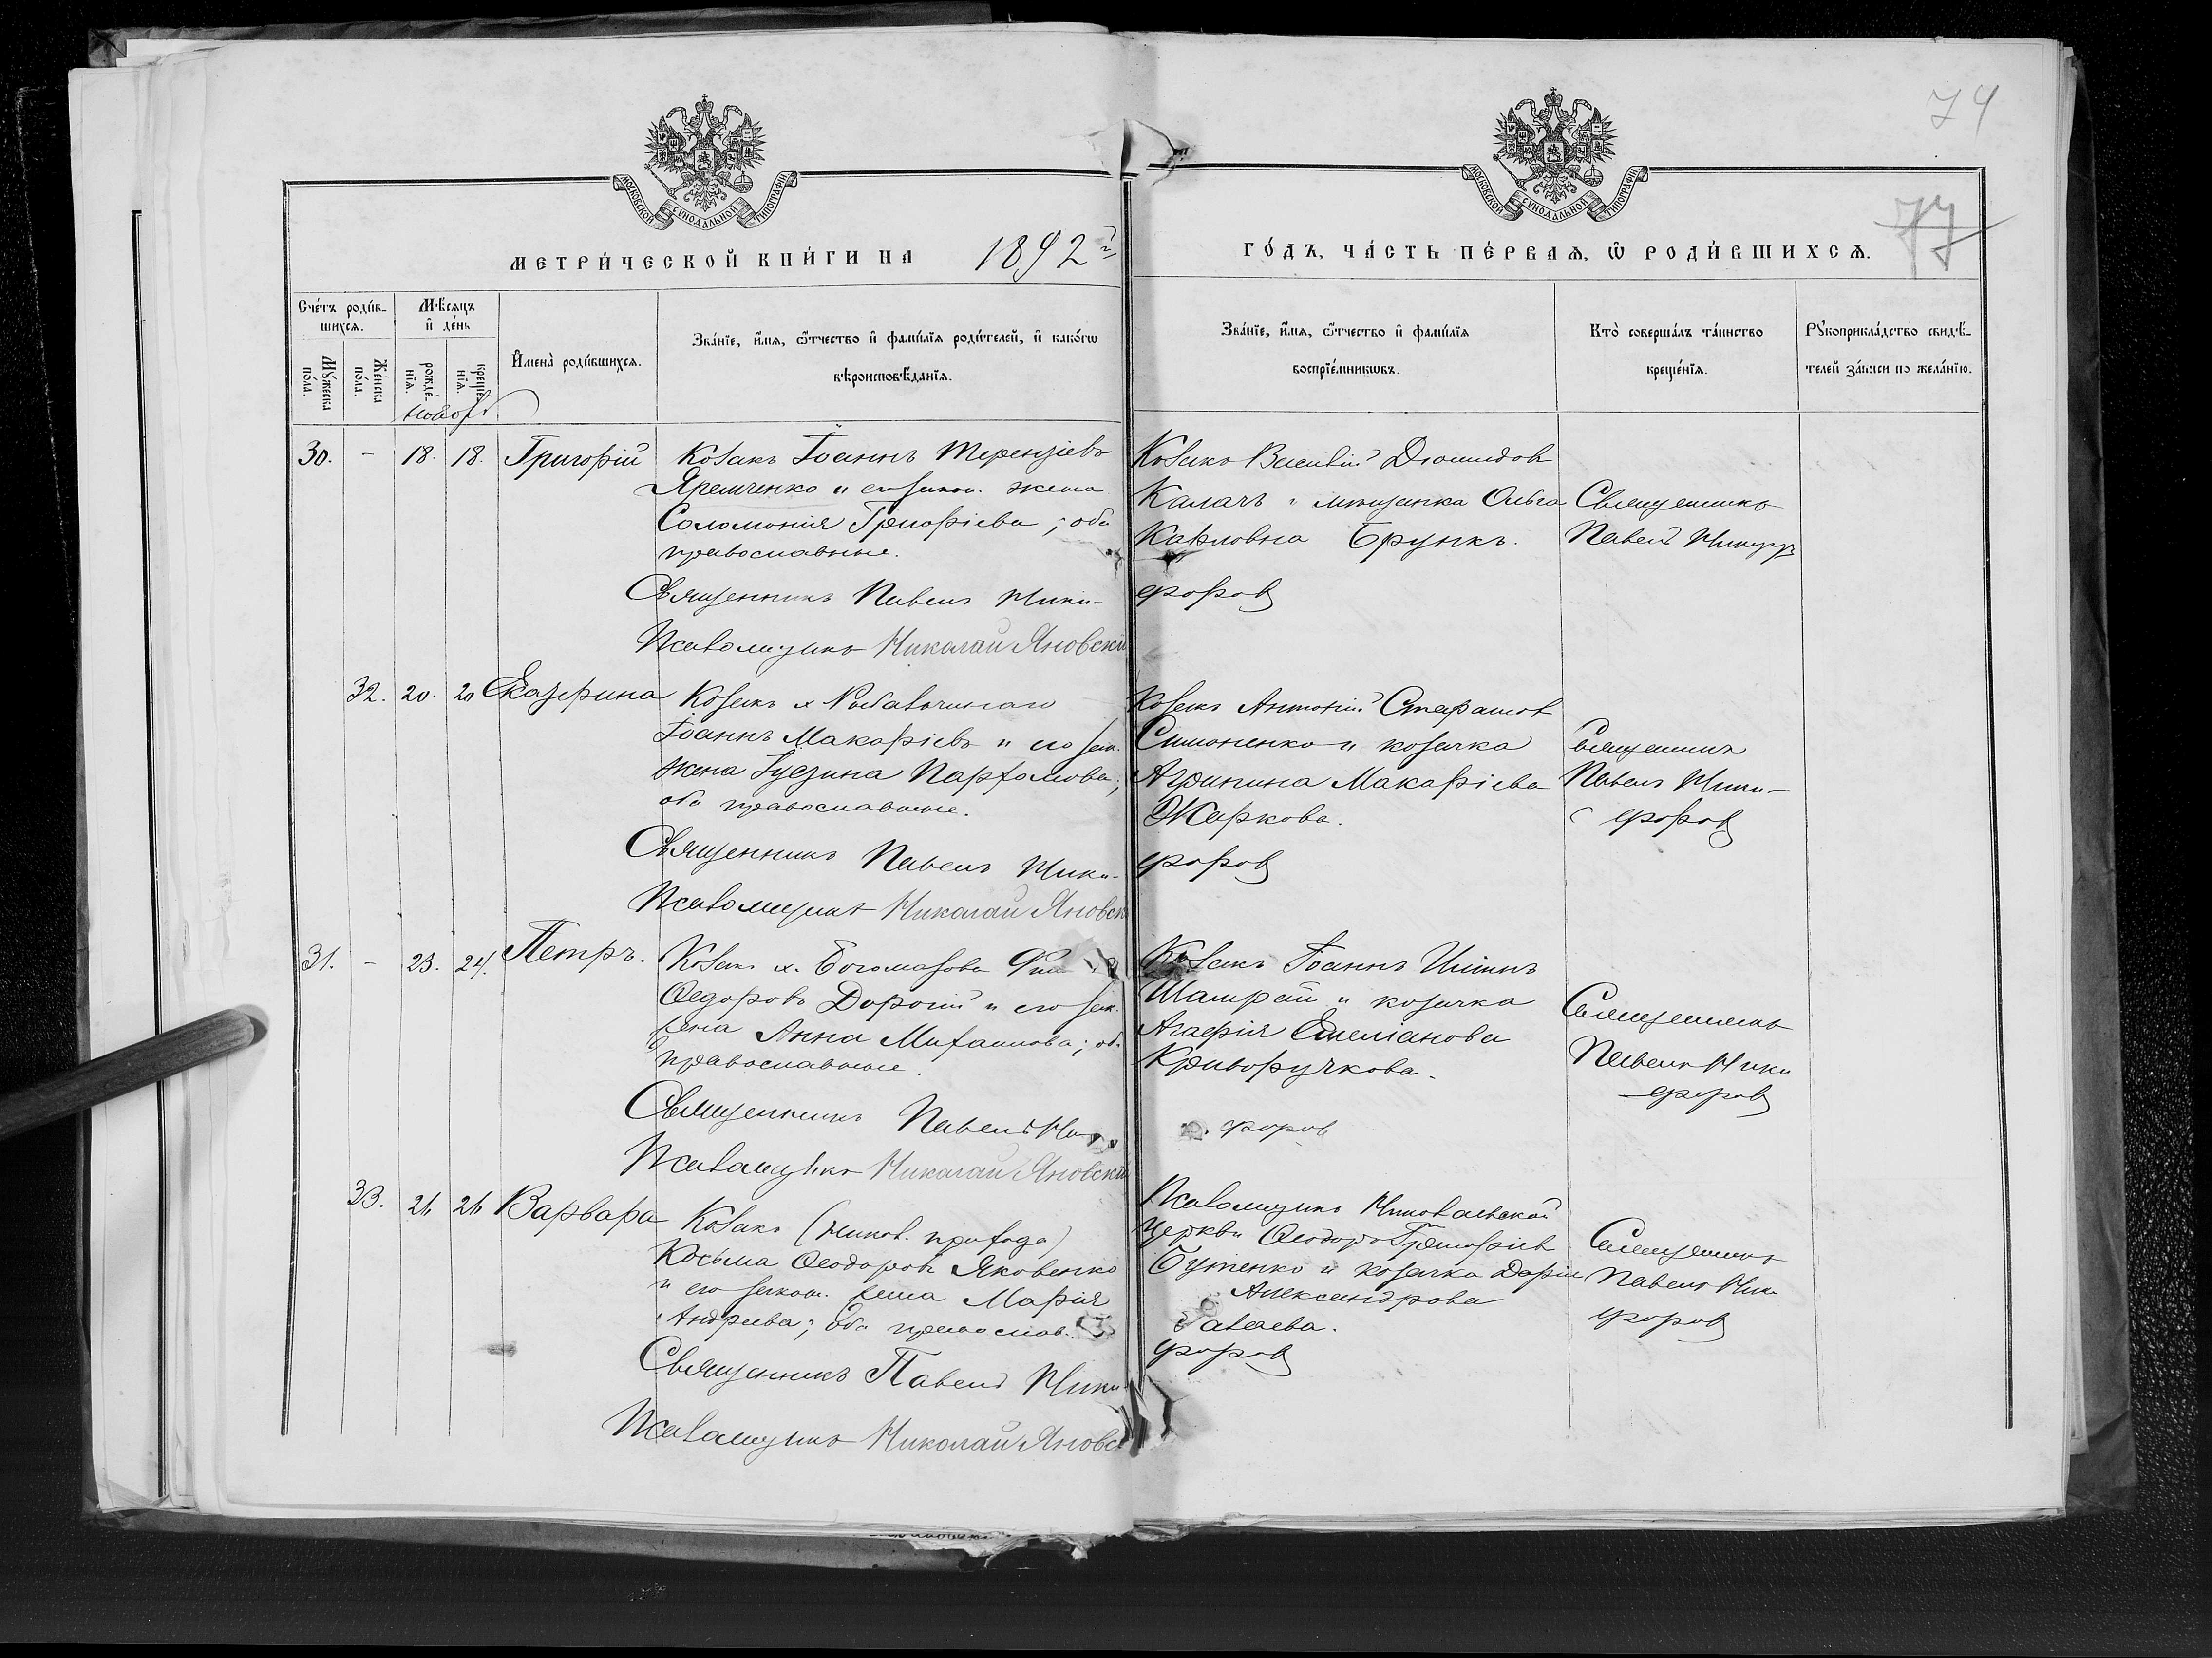 74
77
МОСКОВСКОЙ СУНОДАЛЬНОЙ ТИПОГРАФІИ
МОСКОВСКОЙ СУНОДАЛЬНОЙ ТИПОГРАФІИ
МЕТРИ́ЧЕСКОЙ КНИ́ГИ НА 1892 г
ГО́ДЪ, ЧА́СТЬ ПЕ́РВАЯ, Ѡ РОДИ́ВШИХСЯ.
Сче́тъ роди́в-
шихся.
Му́жеска по́ла.
Же́нска по́ла.
Мѣ́сяцъ и де́нь
рожде́-нія.
креще́-нія.
Имена̀ роди́вшихся.
Зва́ніе, и́мя, ѻ́тчество и фами́лія роди́телей, и како́гѡ
вѣроисповѣ́данія.
Зва́ніе, и́мя, ѻ́тчество и фами́лія
воспріе́мникѡвъ.
Кто̀ соверша́лъ та́инство
креще́нія.
Рꙋкоприкла́дство свидѣ́-
телей за́писи по жела́нію.
30. - 18. 18. Григорій
Козакъ Іоаннъ Терентіевъ
Яремченко и его закон. жена
Соломонія Григоріева; оба
православные.
Священникъ Павелъ Ники-
форов
Псаломщикъ Николай Яновскі
Козакъ Василій Діомидов
Калачъ и мѣщанка Ольга
Карловна Брункъ.
Священникъ
Павелъ
32. 20. 20 Екатерина
Козакъ х
Іоаннъ Макаріевъ и его зак.
жена Іустина Парфомова;
оба православные.
Священникъ Павелъ Ники-
форов
Псаломщикъ Николай Яновск
Козакъ Антоній
Симоненко и козачка
Агрипина Макаріева
Жаркова.
Священникъ
Павелъ Ники-
форов
31. - 23. 24. Петръ.
Козакъ х. Богомазова
Ѳедоровъ Дорогій и его зак.
жена Анна Михаилова; об.
православные.
Священникъ Павелъ Ни
форов
Псаломщикъ Николай Яновскі
Козакъ Іоаннъ Иліинъ
Шамрай и козачка
Агафія Емеліанова
Криворучкова.
Священникъ
Павелъ Ники
форов
33. 26 26 Варвара
Козакъ (Никол. прихода)
Косьма Ѳеодоровъ Яковенко
и его закон. жена Марія
Андреева; оба православ.
Священникъ Павелъ Ники
форов
Псаломщикъ Николай Яновс
Псаломщикъ Николаевской
церкви Ѳеодоръ Григоріев
Бутенко и козачка Дарія
Александрова
Священникъ
Павелъ Ник
форов